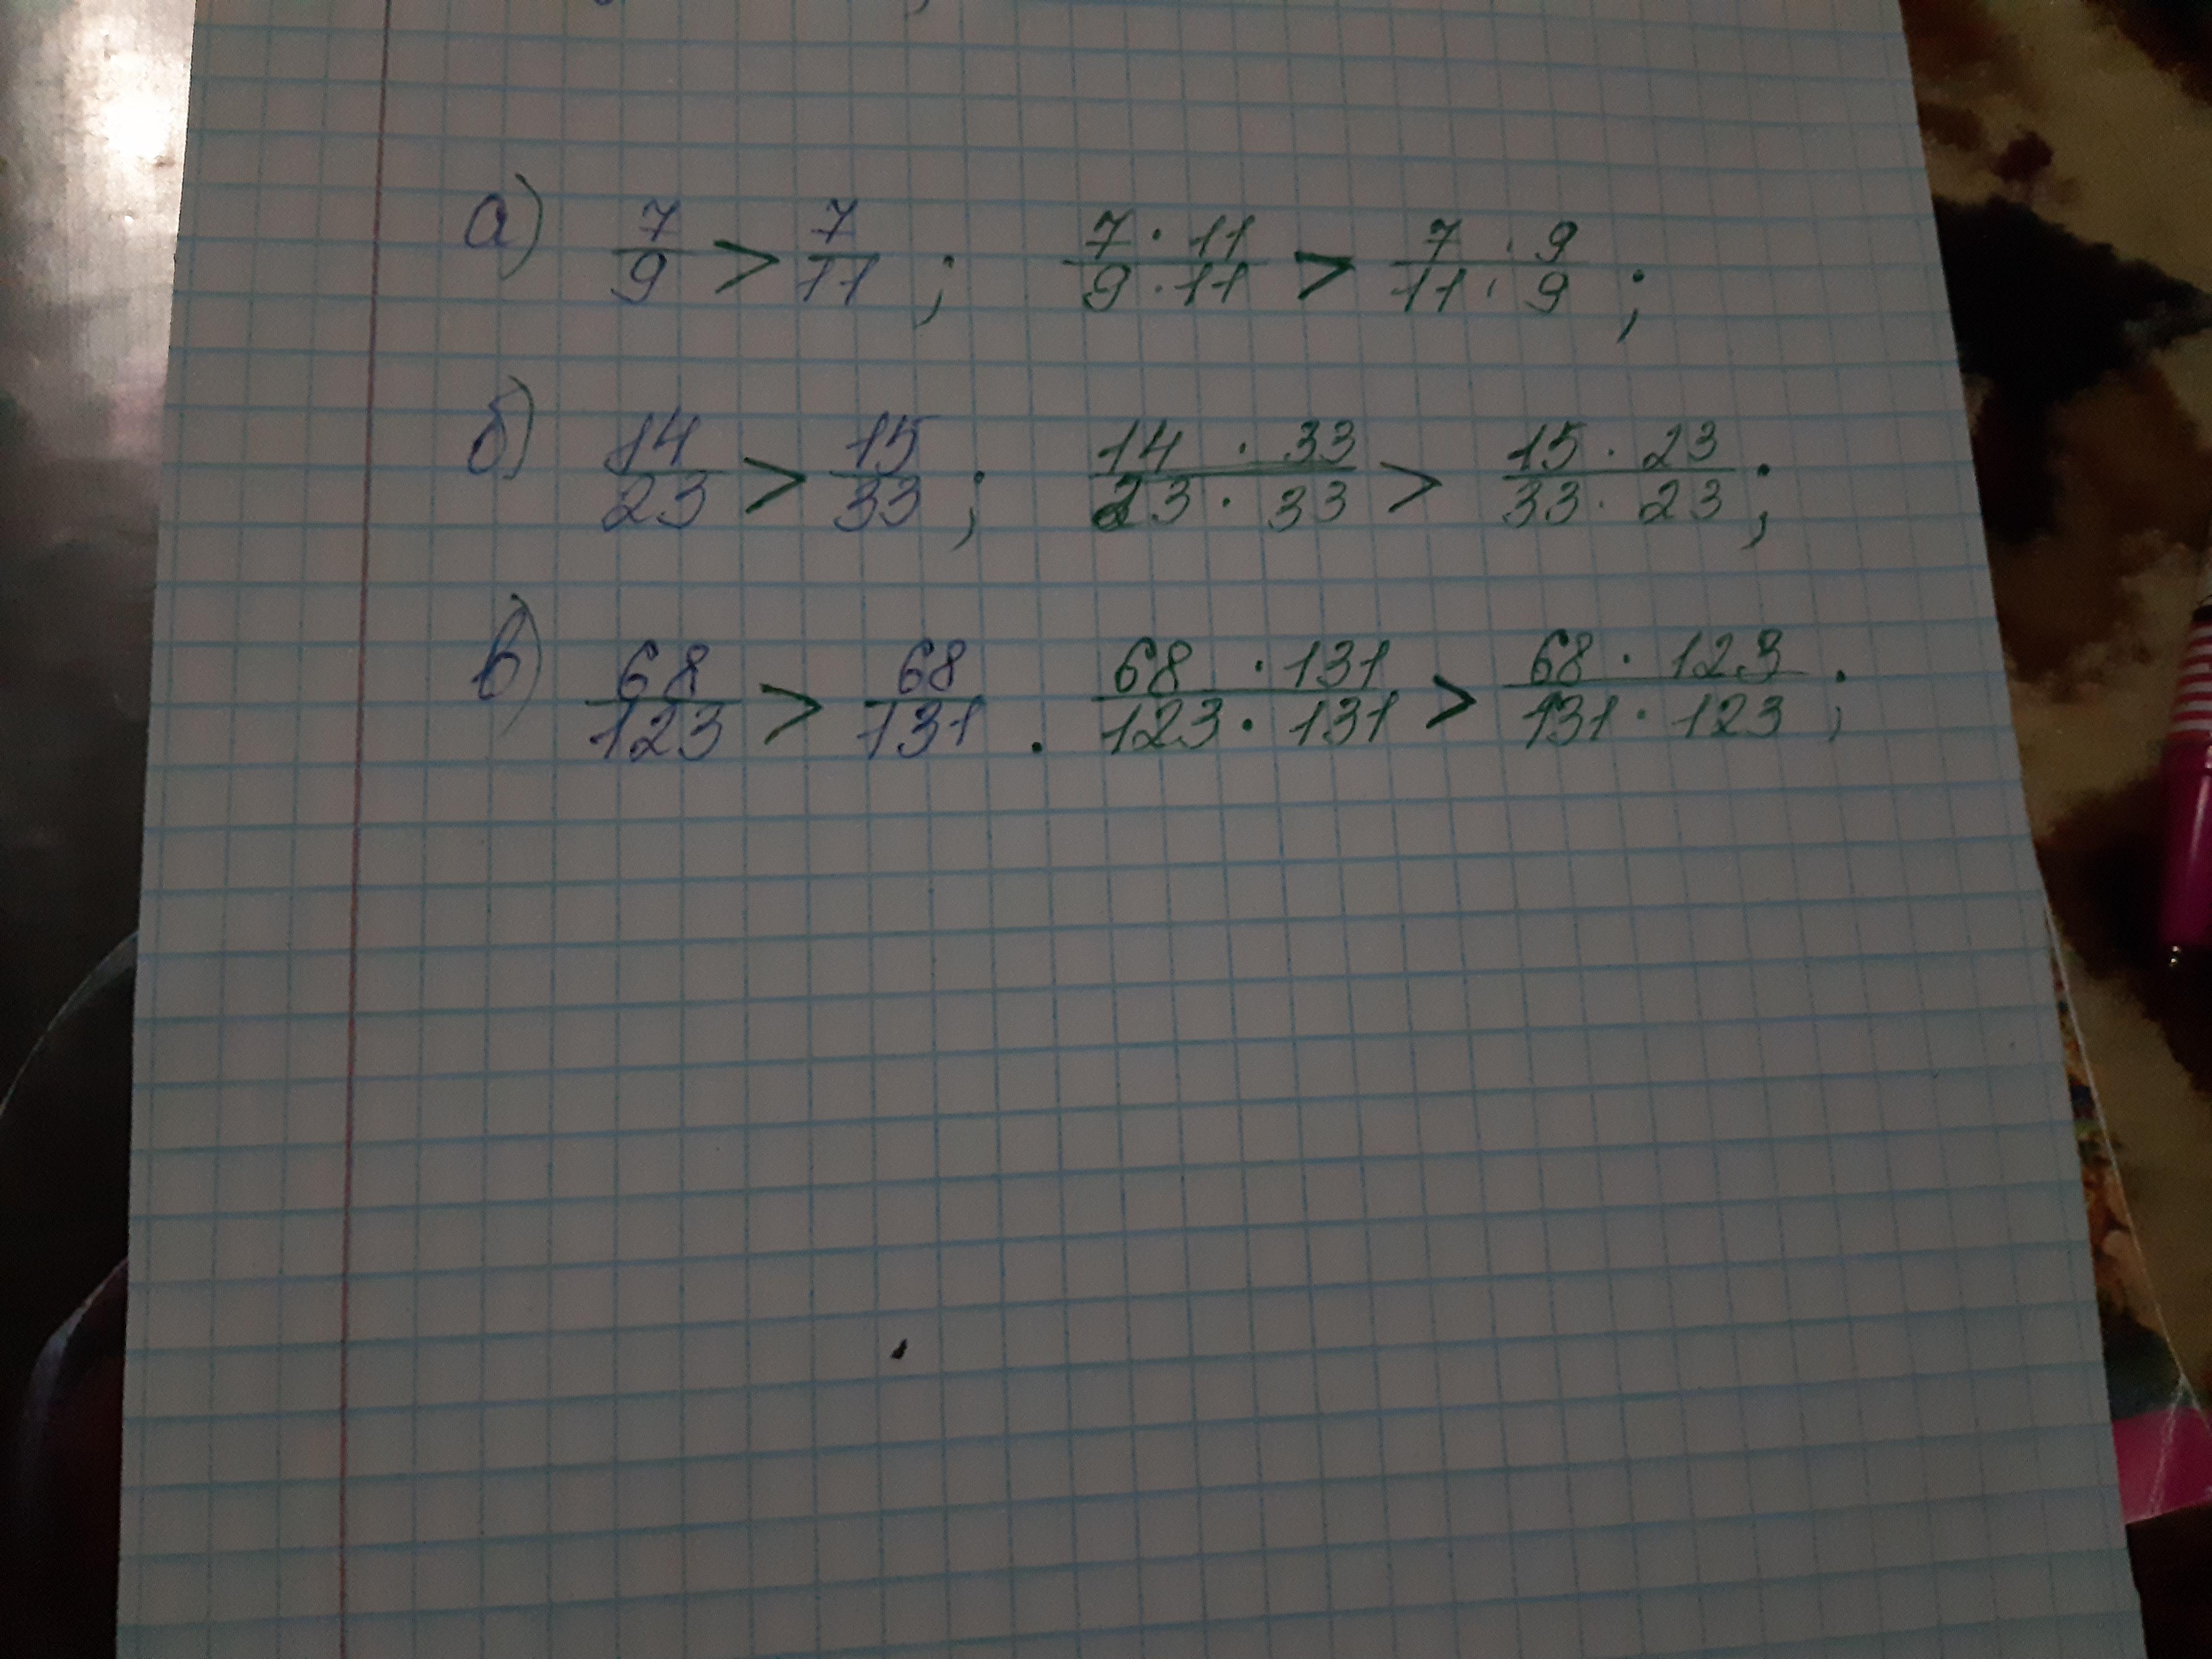 а) 7/9 > 7/11 ; 7 · 11/9 · 11 > 7 · 9/11 · 9 ;
б) 14/23 > 15/33 ; 14 · 33/23 · 33 > 15 · 23/33 · 23 ;
в) 68/123 > 68/131 . 68 · 131/123 · 131 > 68 · 123/131 · 123 ;